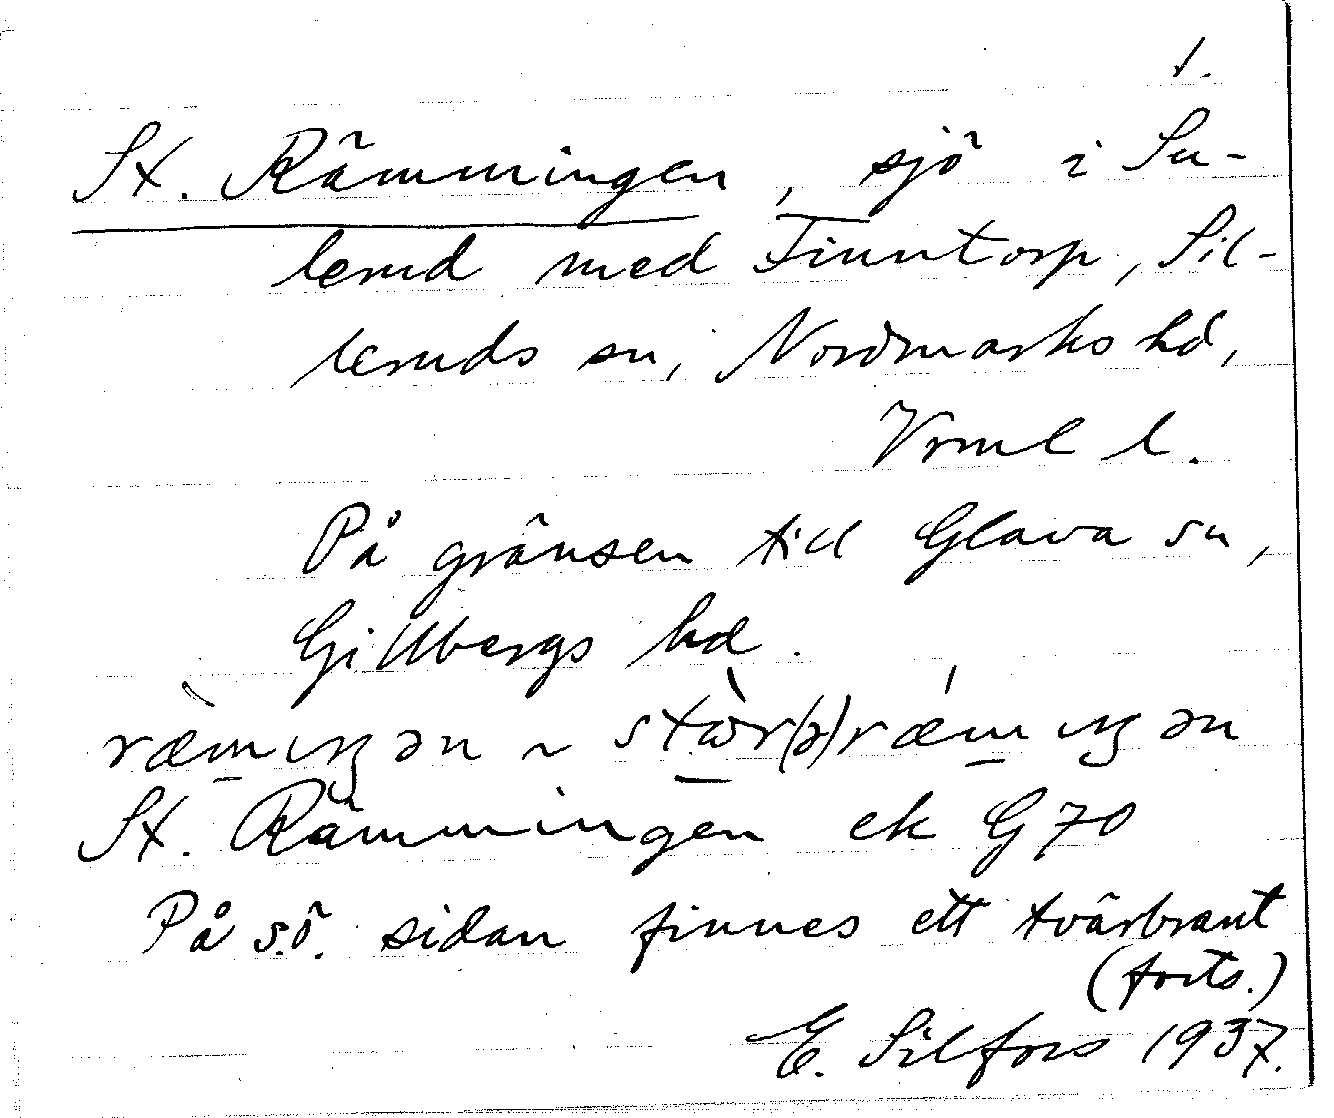 1.
St. Rämmingen, sjö i Su-
lerud med Finntorp, Sil-
leruds sn, Nordmarks hd,
Vrml l.
På gränsen till Glava sn,
Gillbergs hd.
ræ̀mıŋən ~ stɷ̀r(ə)rǽmıŋən
St. Rämmingen ek G70
På s.ö. sidan finnes ett tvärbrant
(forts.)
E. Silfors 1937.